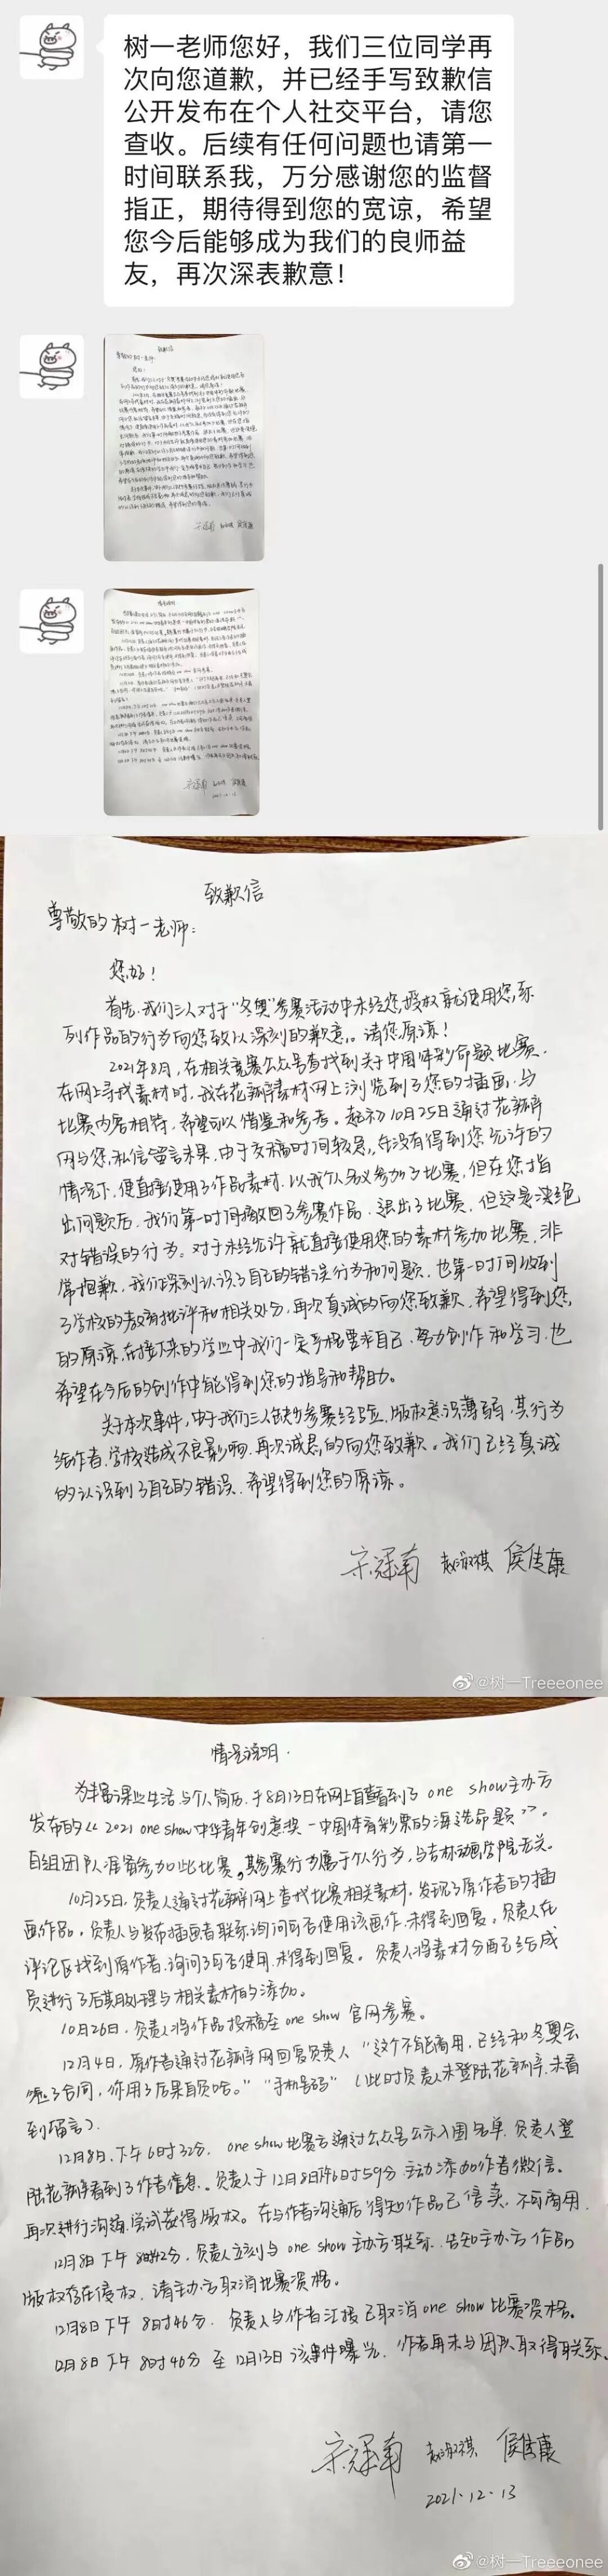 树一老师您好，我们三位同学再
次向您道歉，并已经手写致歉信
公开发布在个人社交平台，请您
查收。后续有任何问题也请第一
时间联系我，万分感谢您的监督
指正，期待得到您的宽谅，希望
您今后能够成为我们的良师益
友，再次深表歉意！
致歉信
尊敬的树一老师：
您好！
首先，我们三人对于“冬奥”参赛活动中未经您授权就使用您系
列作品的行为向您致以深刻的歉意。请您原谅！
2021年8月，在相关竞赛公众号查找到关于中国体彩命题比赛，
在网上寻找素材时，我在花瓣素材网上浏览到了您的插画，与
比赛内容相符，希望可以借鉴和参考。起初10月25日通过花瓣
网与您私信留言未果，由于交稿时间较急，在没有得到您允许的
情况下，便直接使用了作品素材，以我个人名义参加了比赛，但在您指
出问题后，我们第一时间撤回了参赛作品，退出了比赛，但这是决绝
对错误的行为。对于未经允许就直接使用您的素材参加比赛，非
常抱歉，我们深刻认识了自己的错误行为和问题，也第一时间收到
了学校的教育批评和相关处分，再次真诚的向您致歉，希望得到您
的原谅，在接下来的学业中我们一定严格要求自己，努力创作和学习，也
希望在今后的创作中能得到您的指导和帮助。
关于本次事件，由于我们三人缺少参赛经验，版权意识薄弱，其行为
给作者、学校造成不良影响，再次诚恳的向您致歉。我们已经真诚
的认识到了自己的错误，希望得到您的原谅。
宋冠南 赵淑祺 侯佳康
@树一Treeeonee
情况说明
为丰富课业生活与个人简历，于8月13日在网上自查看到了one show主办方
发布的《2021 one show中华青年创意奖－中国体育彩票的海选命题》。
自组团队准备参加此比赛，其参赛行为属于个人行为，与吉林动画学院无关。
10月25日，负责人通过花瓣网上查找比赛相关素材，发现了原作者的插
画作品，负责人与发布插画者联系，询问可否使用该画作，未得到回复。负责人在
评论区找到原作者，询问可否使用，未得到回复。负责人将素材分配已给成
员进行了后期处理与相关素材的添加。
10月26日，负责人将作品投稿至one show官网参赛。
12月4日，原作者通过花瓣网回复负责人“这个不能商用，已经和冬奥会
签了合同，你用了后果自负哈。”“手机号码”（此时负责人未登陆花瓣，未看
到留言）.
12月8日，下午6时32分，one show比赛方通过公众号公示入围名单，负责人登
陆花瓣看到了作者信息。负责人于12月8日下午6时59分，主动添加作者微信。
再次进行沟通，尝试获得版权。在与作者沟通后得知作品已售卖，不可商用.
12月8日下午8时42分，负责人立刻与one show主办方联系，告知主办方作品
版权存在侵权，请主办方取消比赛资格。
12月8日下午8时46分，负责人与作者汇报已取消one show比赛资格。
12月8日下午8时46分至12月13日该事件曝光，作者再未与团队取得联系。
宋冠南 赵淑祺 侯佳康
2021.12.13
@树一Treeeonee